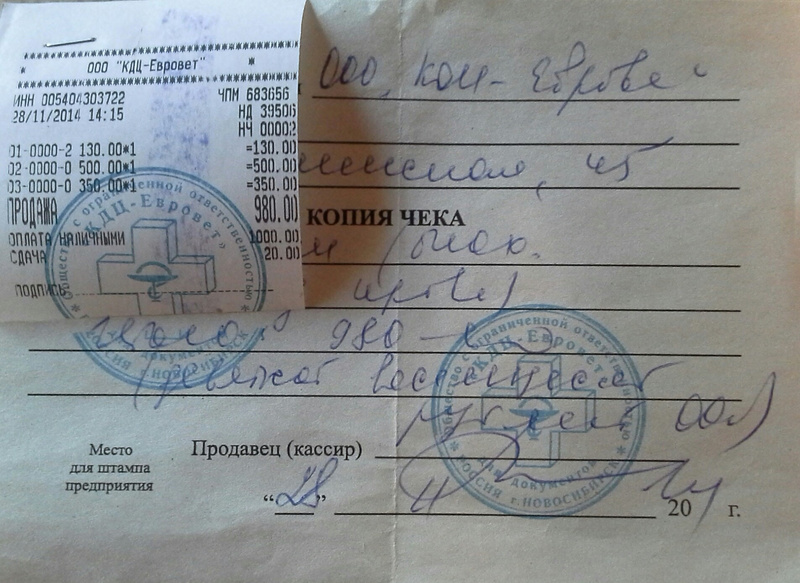 * ООО "КДЦ-Евровет" *
ИНН 005404303722 ЧПМ 683656
28/11/2014 14:15 НД 39506
НЧ 00002
01-0000-2 130.00*1 =130.00
02-0000-0 500.00*1 =500.00
03-0000-0 350.00*1 =350.00
ПРОДАЖА 980.00
ОПЛАТА НАЛИЧНЫМИ 1000.00
СДАЧА 20.00
ПОДПИСЬ
Общество с ограниченной ответственностью
"КДЦ-Евровет"
для документов
РОССИЯ г. НОВОСИБИРСК
ООО, КДЦ-Еврове
45
КОПИЯ ЧЕКА
980
(девятсот восемьдесят
рублей 00
Общество с ограниченной ответственностью
"КДЦ-Евровет"
для документов
РОССИЯ г. НОВОСИБИРСК
Место
для штампа
предприятия
Продавец (кассир)
"28" 11 2014 г.